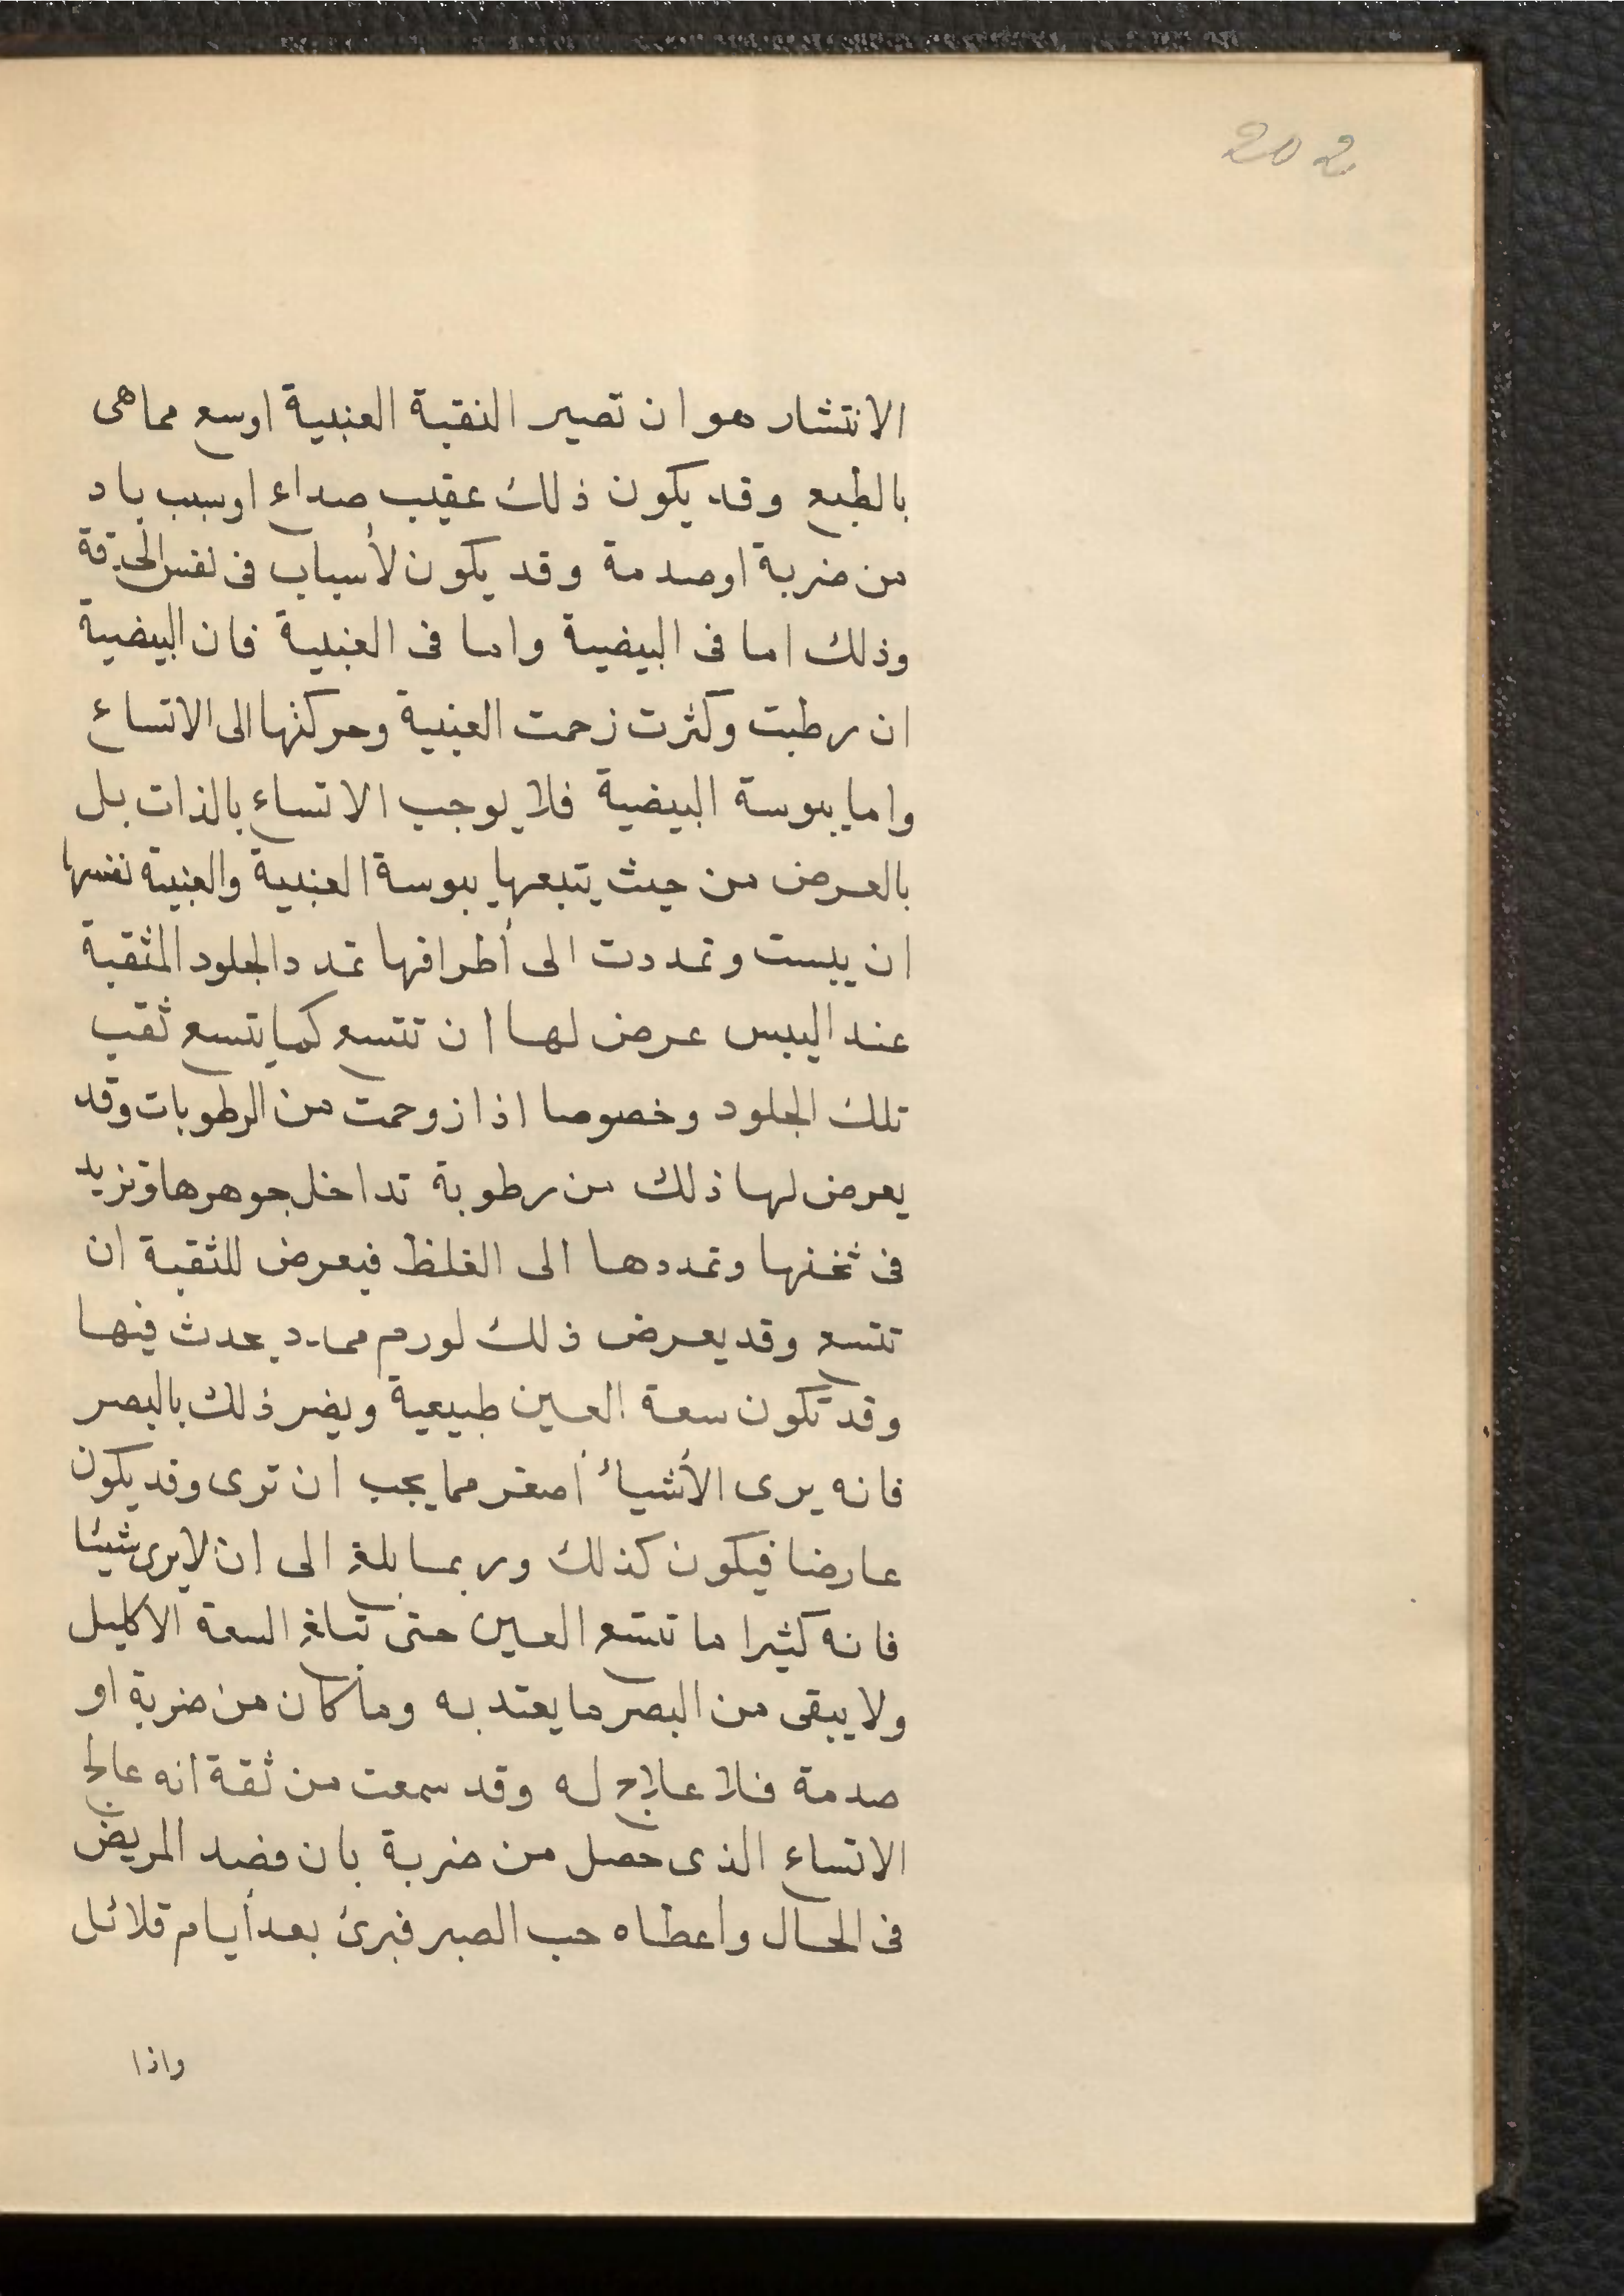 202
الانتشار هو ان تصير النقبة العنبية اوسع مما هى
بالطبع وقد يكون ذلك عقيب صداع اوسبب باد
من ضربة اوصدمة وقد يكون لأسباب فى نفس الحدقة
وذلك اما فى البيضية واما فى العنبية فان البيضية
ان رطبت وكثرت زحمت العنبية وحركتها الى الاتساع
واما يبوسة البيضية فلا يوجب الاتساع بالذات بل
بالعرض من حيث يتبعها يبوسة العنبية والعنبية نفسها
ان يبست وتمددت الى أطرافها تمدد الجلود المثقبة
عند اليبس عرض لها ان تتسع كما يتسع ثقب
تلك الجلود وخصوصا اذا زوحمت من الرطوبات وقد
يعرض لها ذلك من رطوبة تداخل جوهرها وتزيد
فى ثخنها وتمددها الى الغلظ فيعرض للثقبة ان
تتسع وقد يعرض ذلك لورم ممدد يحدث فيها
وقد تكون سعة العين طبيعية ويضر ذلك بالبصر
فانه يرى الأشياء أصغر مما يجب ان ترى وقد يكون
عارضا فيكون كذلك وربما بلغ الى ان لا يرى شيئا
فانه كثيرا ما تتسع العين حتى تبلغ السعة الاكليل
ولا يبقى من البصر ما يعتد به وما كان من ضربة او
صدمة فلا علاج له وقد سمعت من ثقة انه عالج
الاتساع الذى حصل من ضربة بان فصد المريض
فى الحال وأعطاه حب الصبر فبرئ بعد أيام قلائل
واذا